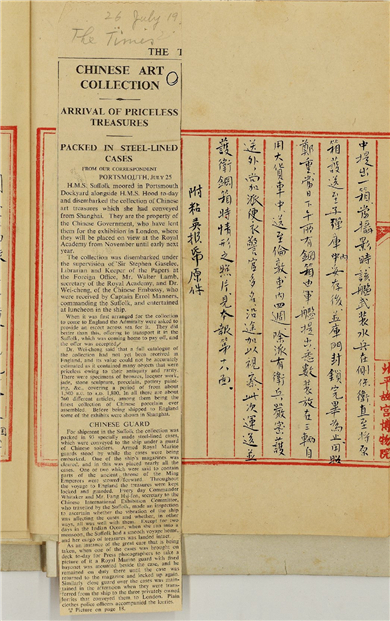 26 July 19
The Times
THE T
CHINESE ART
COLLECTION
ARRIVAL OF PRICELESS
TREASURES
PACKED IN STEEL-LINED
CASES
FROM OUR CORRESPONDENT
PORTSMOUTH, JULY 25
H.M.S. Suffolk, moored in Portsmouth
Dockyard alongside H.M.S. Hood to-day
and disembarked the collection of Chinese
art treasures which she had conveyed
from Shanghai. They are the property of
the Chinese Government, who have lent
them for the exhibition in London, where
they will be placed on view at the Royal
Academy from November until early next
year.
The collection was disembarked under
the supervision of Sir Stephen Gaselee,
Librarian and Keeper of the Papers at
the Foreign Office, Mr. Walter Lamb,
secretary of the Royal Academy, and Dr.
Wei-cheng, of the Chinese Embassy, who
were received by Captain Errol Manners,
commanding the Suffolk, and entertained
at luncheon in the ship.
When it was first arranged for the collection
to come to England the Admiralty were asked to
provide an escort across sea for it. They did
better than this, offering to transport it in the
Suffolk, which was coming home to pay off, and
the offer was accepted.
Dr. Wei-cheng said that a full catalogue of
the collection had not yet been received in
England, and its value could not be accurately
estimated as it contained many objects that were
priceless owing to their antiquity and rarity.
There were specimens of bronzes, lacquer work,
jade, stone sculpture, porcelain, pottery paint-
ing, &c., covering a period of from about
CHINESE GUARD
For shipment in the Suffolk the collection was
packed in 93 specially made steel-lined cases,
which were conveyed to the ship under a guard
of Chinese soldiers. Armed Royal Marine
guards stood by while the cases were being
embarked. One of the ship's magazines was
cleared, and in this was placed nearly all the
cases. One or two which were said to contain
parts of the ancient throne of the Ming
Emperors were stowed forward. Throughout
the voyage to England the treasures were kept
locked and guarded. Every day Commander
Whitaker and Mr. Fang Hsi-fen, secretary to the
Chinese International Exhibition Committee,
who travelled by the Suffolk, made an inspection
to ascertain whether the vibration of the ship
was affecting the cases and whether, in other
ways, all was well with them. Except for two
days in the Indian Ocean, when she ran into a
monsoon, the Suffolk had a smooth voyage home,
and her cargo of treasures was landed intact.
As an instance of the great care that is being
taken, when one of the cases was brought on
deck to-day for Press photographers to take a
picture of it a Royal Marine guard with fixed
bayonet was mounted beside the case, and he
remained on duty there until the case was
returned to the magazine and locked up again.
Similarly close guard over the cases was main-
tained in the afternoon when they were trans-
ferred from the ship to the three privately owned
lorries that conveyed them to London. Plain
clothes police officers accompanied the lorries.
Picture on page 18.
鄭重當日下午 鋼箱由軍艦提出悉數裝放在三輛自
用大貨車中送至倫敦車內四週除派有衛兵嚴密護
送外尚 派便衣警官多名沿途加以視察此次運送並
護衛鋼箱時情形之照片見本報第十八面
附粘英報原件
北平故宮博物院